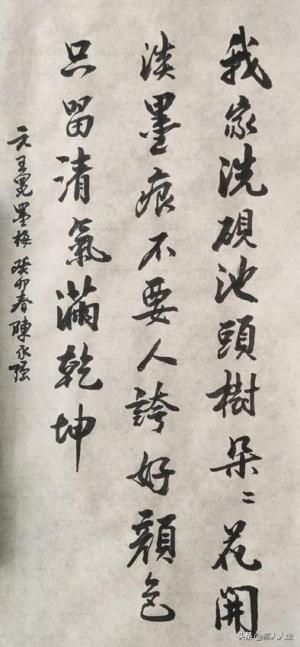 我家洗硯池頭樹朵〻花開
淡墨痕不要人誇好顏色
只留清氣滿乾坤
元王冕墨梅 癸卯春陳永强